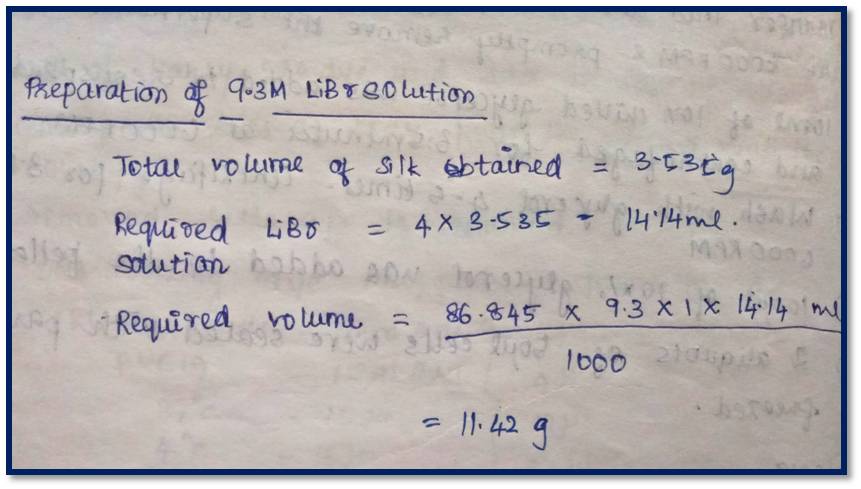 Preparation of 9.3M LiBr Solution
Total volume of silk obtained = 3.535g
Required LiBr = 4 × 3.535 - 14.14 ml.
solution
Required volume = 86.845 × 9.3 × 1 × 14.14 ml
1000
= 11.42 g